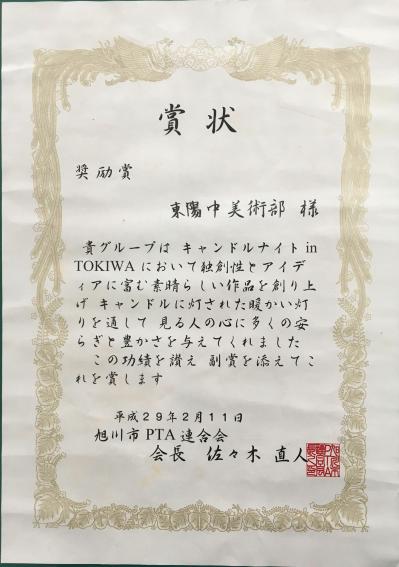 賞状
奨励賞
東陽中美術部 様
貴グループは キャンドルナイト in
TOKIWA において独創性とアイデ
ィアに富む素晴らしい作品を創り上
げ キャンドルに灯された暖かい灯
りを通して 見る人の心に多くの安
らぎと豊かさを与えてくれました
この功績を讃え 副賞を添えてこ
れを賞します
平成29年2月11日
旭川市 PTA 連合会
会長 佐々木 直人